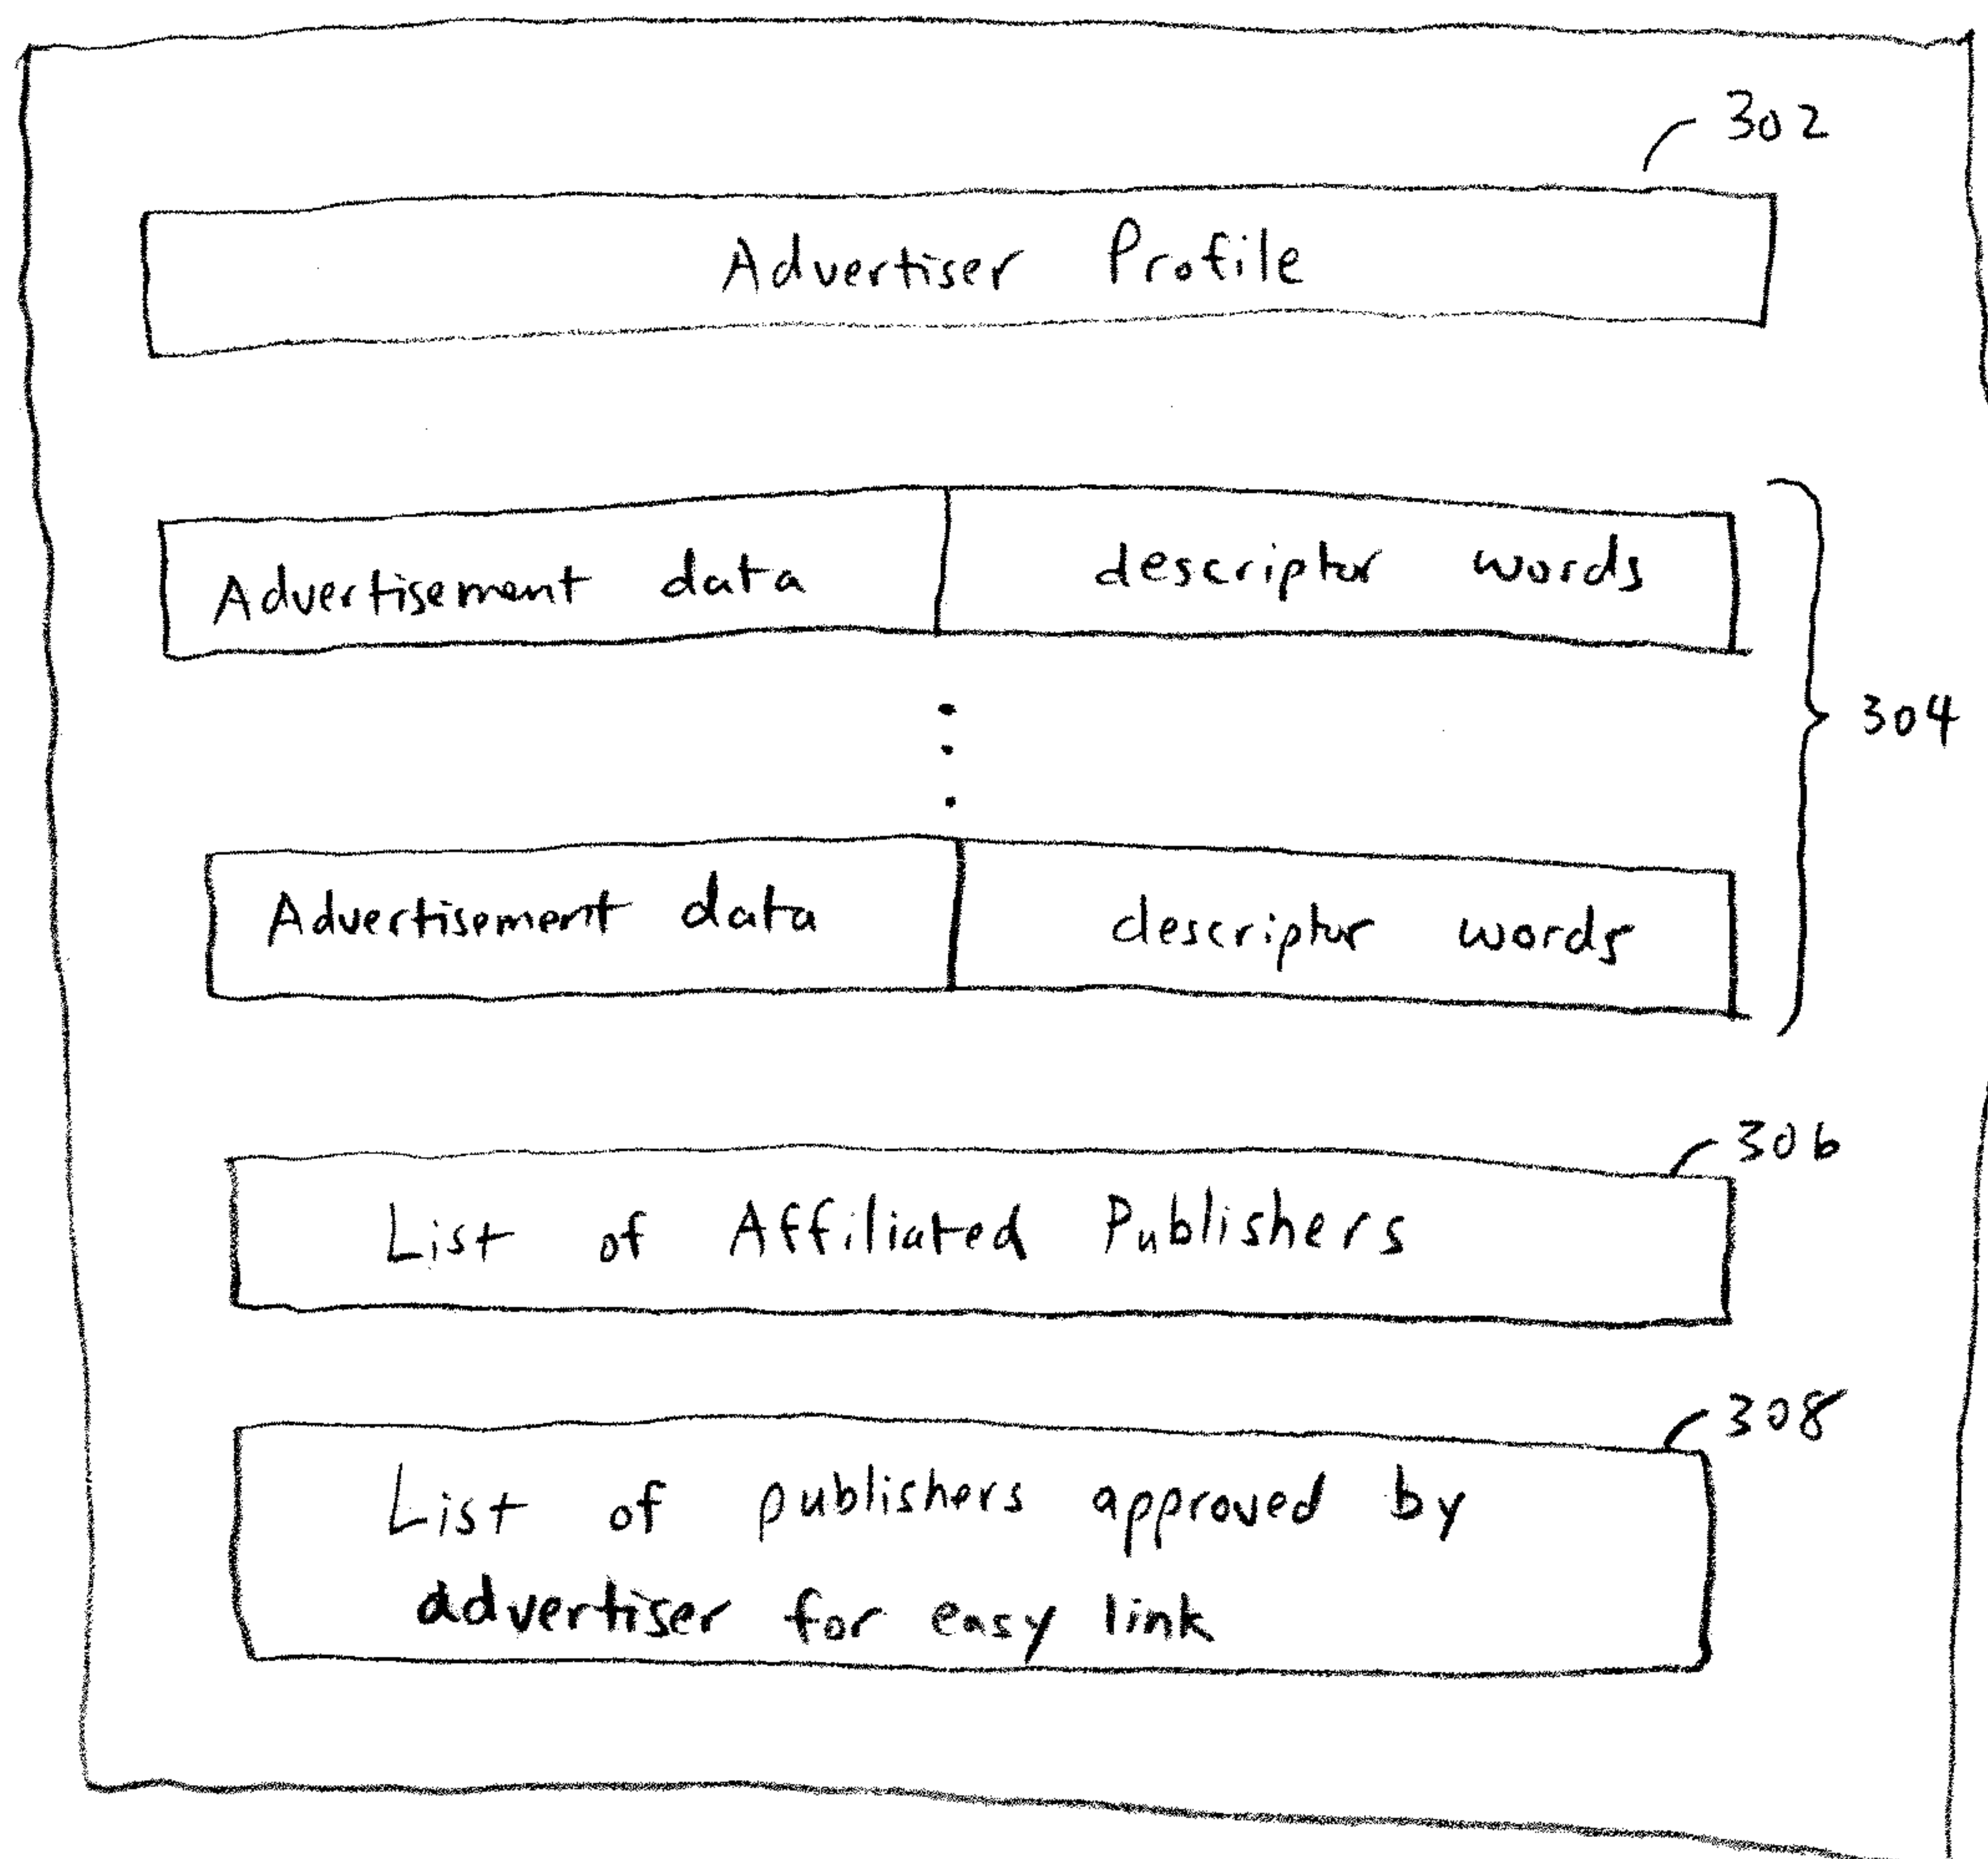 302
Advertiser Profile
Advertisement data descriptor words
304
Advertisement data descriptor words
306
List of Affiliated Publishers
308
List of publishers approved by
advertiser for easy link